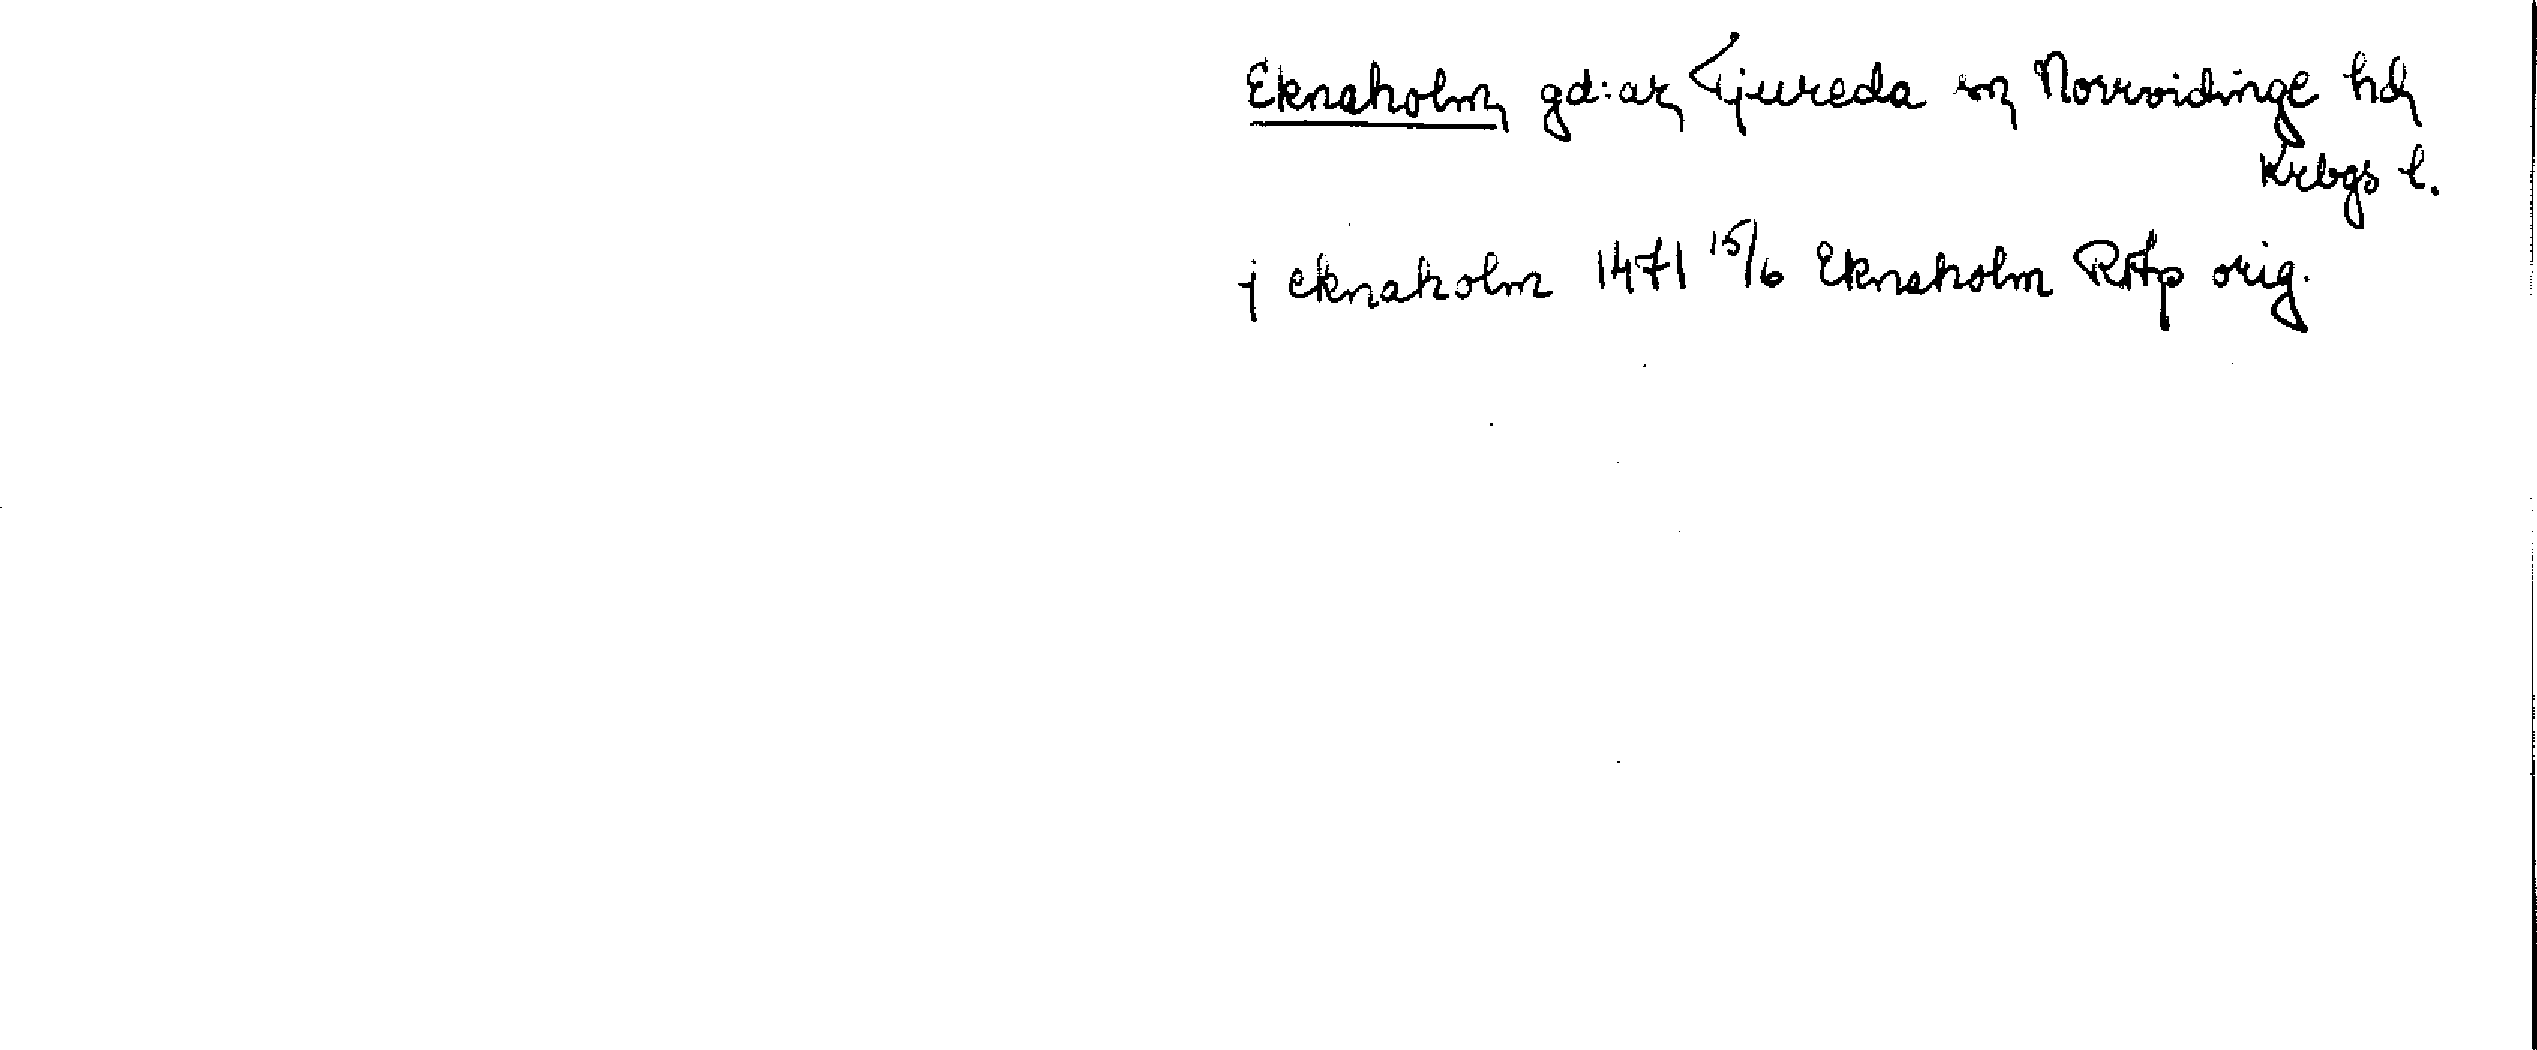 Eknaholm gd:ar Tjureda sn Norrvidinge hd
Krbgs l.
j eknaholm 1471 15/6 Eknaholm RAp orig.